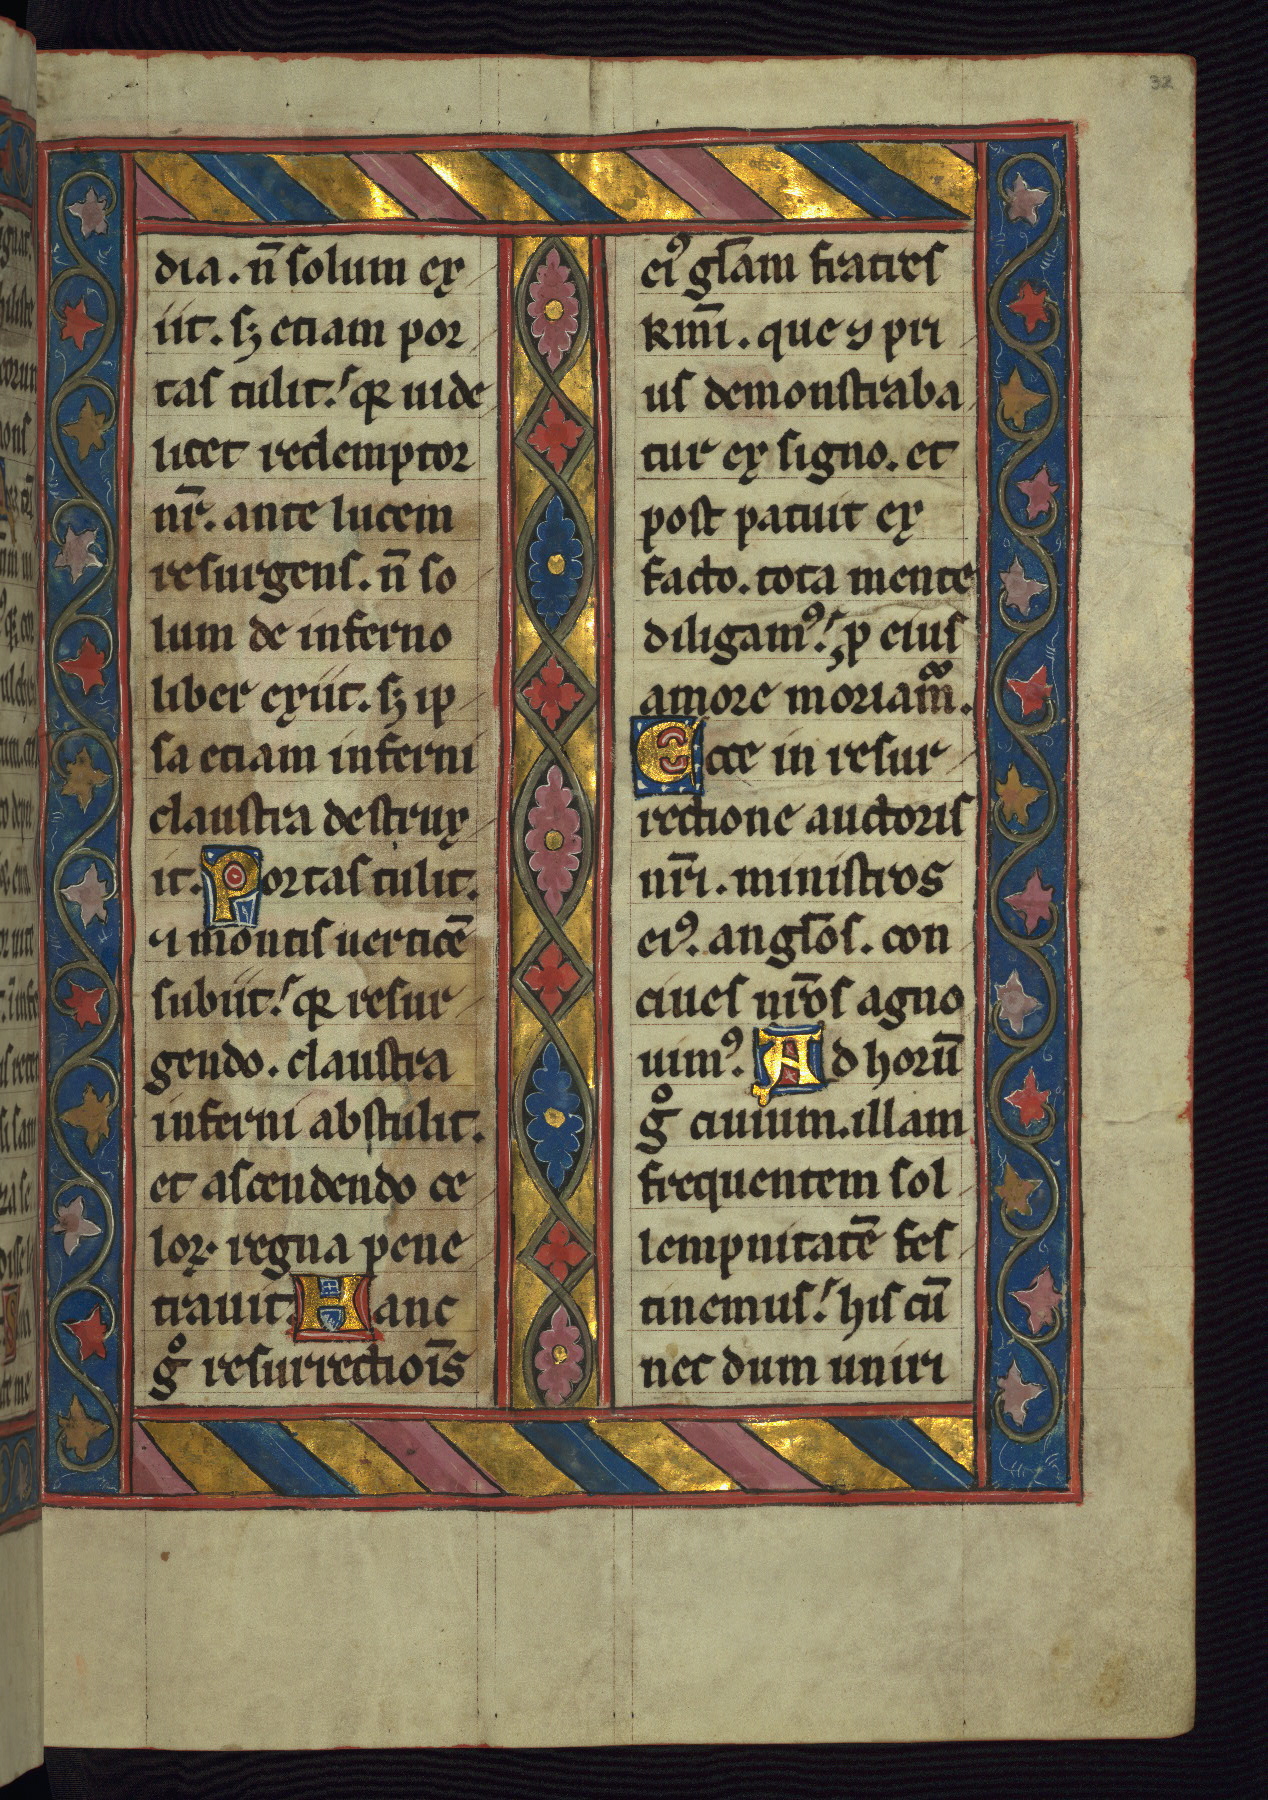 32
dia. n̄ solum ex
iit. sꝫ etiam por
tas tulit. qꝛ uide
licet redemptor
nr̄. ante lucem
resurgens. n̄ so
lum de inferno
liber exiit. sꝫ ip
sa etiam inferni
claustra destrux
it. Portas tulit.
⁊ montis uerticē
subiit. qꝛ resur
gendo. claustra
inferni abstulit.
et ascendendo ce
loꝝ regna pene
trauit. Hanc
gͦ resurrectiōis
eiꝰ gl̄am fratres
kmī. que ⁊ pri
us demonstraba
tur ex signo. et
post patuit ex
facto. tota mente
diligamꝰ. ꝓ eius
amore moriam᷑.
Ecce in resur
rectione auctoris
nr̄i. ministros
eiꝰ. angl̄os. con
ciues nr̄os agno
uimꝰ. Ad horū
gͦ ciuium. illam
frequentem sol
lempnitatē fes
tinemus. his cū
nec dum uniri